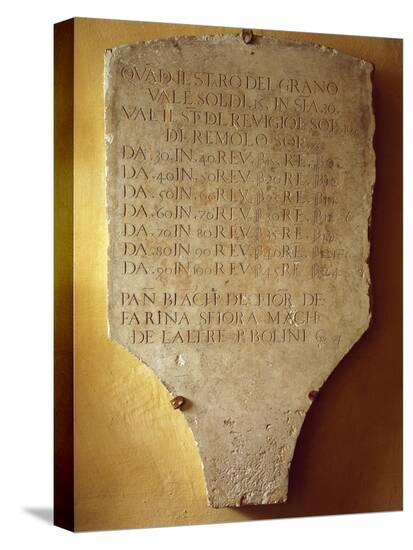 QVĀD. IL ST.RO DEL GRANO
VALE SOLDI. 15. IN SIA. 30.
VAL IL ST. DE REVIGIOL SOL
DE REMOLO SOL
DA. 30. IN. 40 REV. β 15. RE.
DA. 40. IN. 50 REV. β 20 RE.
DA. 50. IN. REV. β RE.
DA. 60. IN. 70 REV. β 30 RE.
DA. 70 IN 80 REV. β 35 RE.
DA. 80 IN 90 REV. β 40 RE.
DA. 90 IN 100 REV. β 45 RE.
PAN BIACH DE FIOR DE
FARINA SFIORA MACH
DE LALTRE P. BOLINI